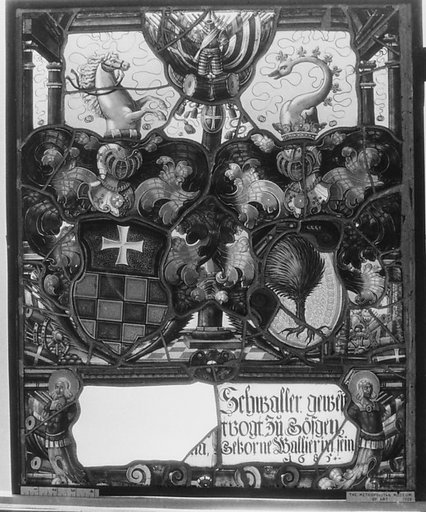 Schwaller gewe
rvogt Zu Gösgen,
Geborne Wallier in sein
1683
THE METROPOLITAN MUSEUM
OF ART